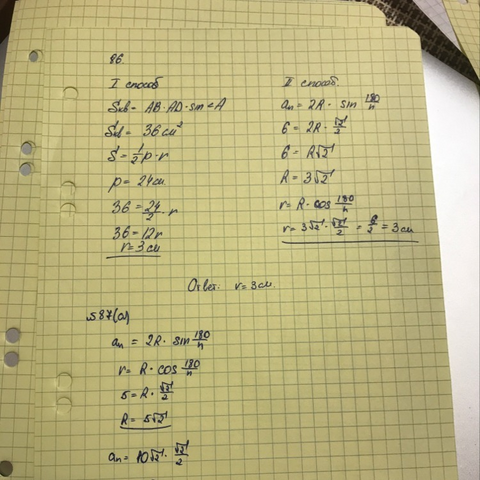 86
I способ
Sкв = AB · AD · sin ∠A
Sкв = 36 см²
S = 1/2 p · r
p = 24 см
36 = 24/2 · r
36 = 12r
r = 3 см
II способ.
aₙ = 2R · sin 180/n
6 = 2R · √2/2
6 = R√2
R = 3√2
r = R · cos 180/n
r = 3√2 · √2/2 = 6/2 = 3 см
Ответ: r = 3 см.
№87(а)
aₙ = 2R · sin 180/n
r = R · cos 180/n
5 = R · √2/2
R = 5√2
aₙ = 10√2 · √2/2